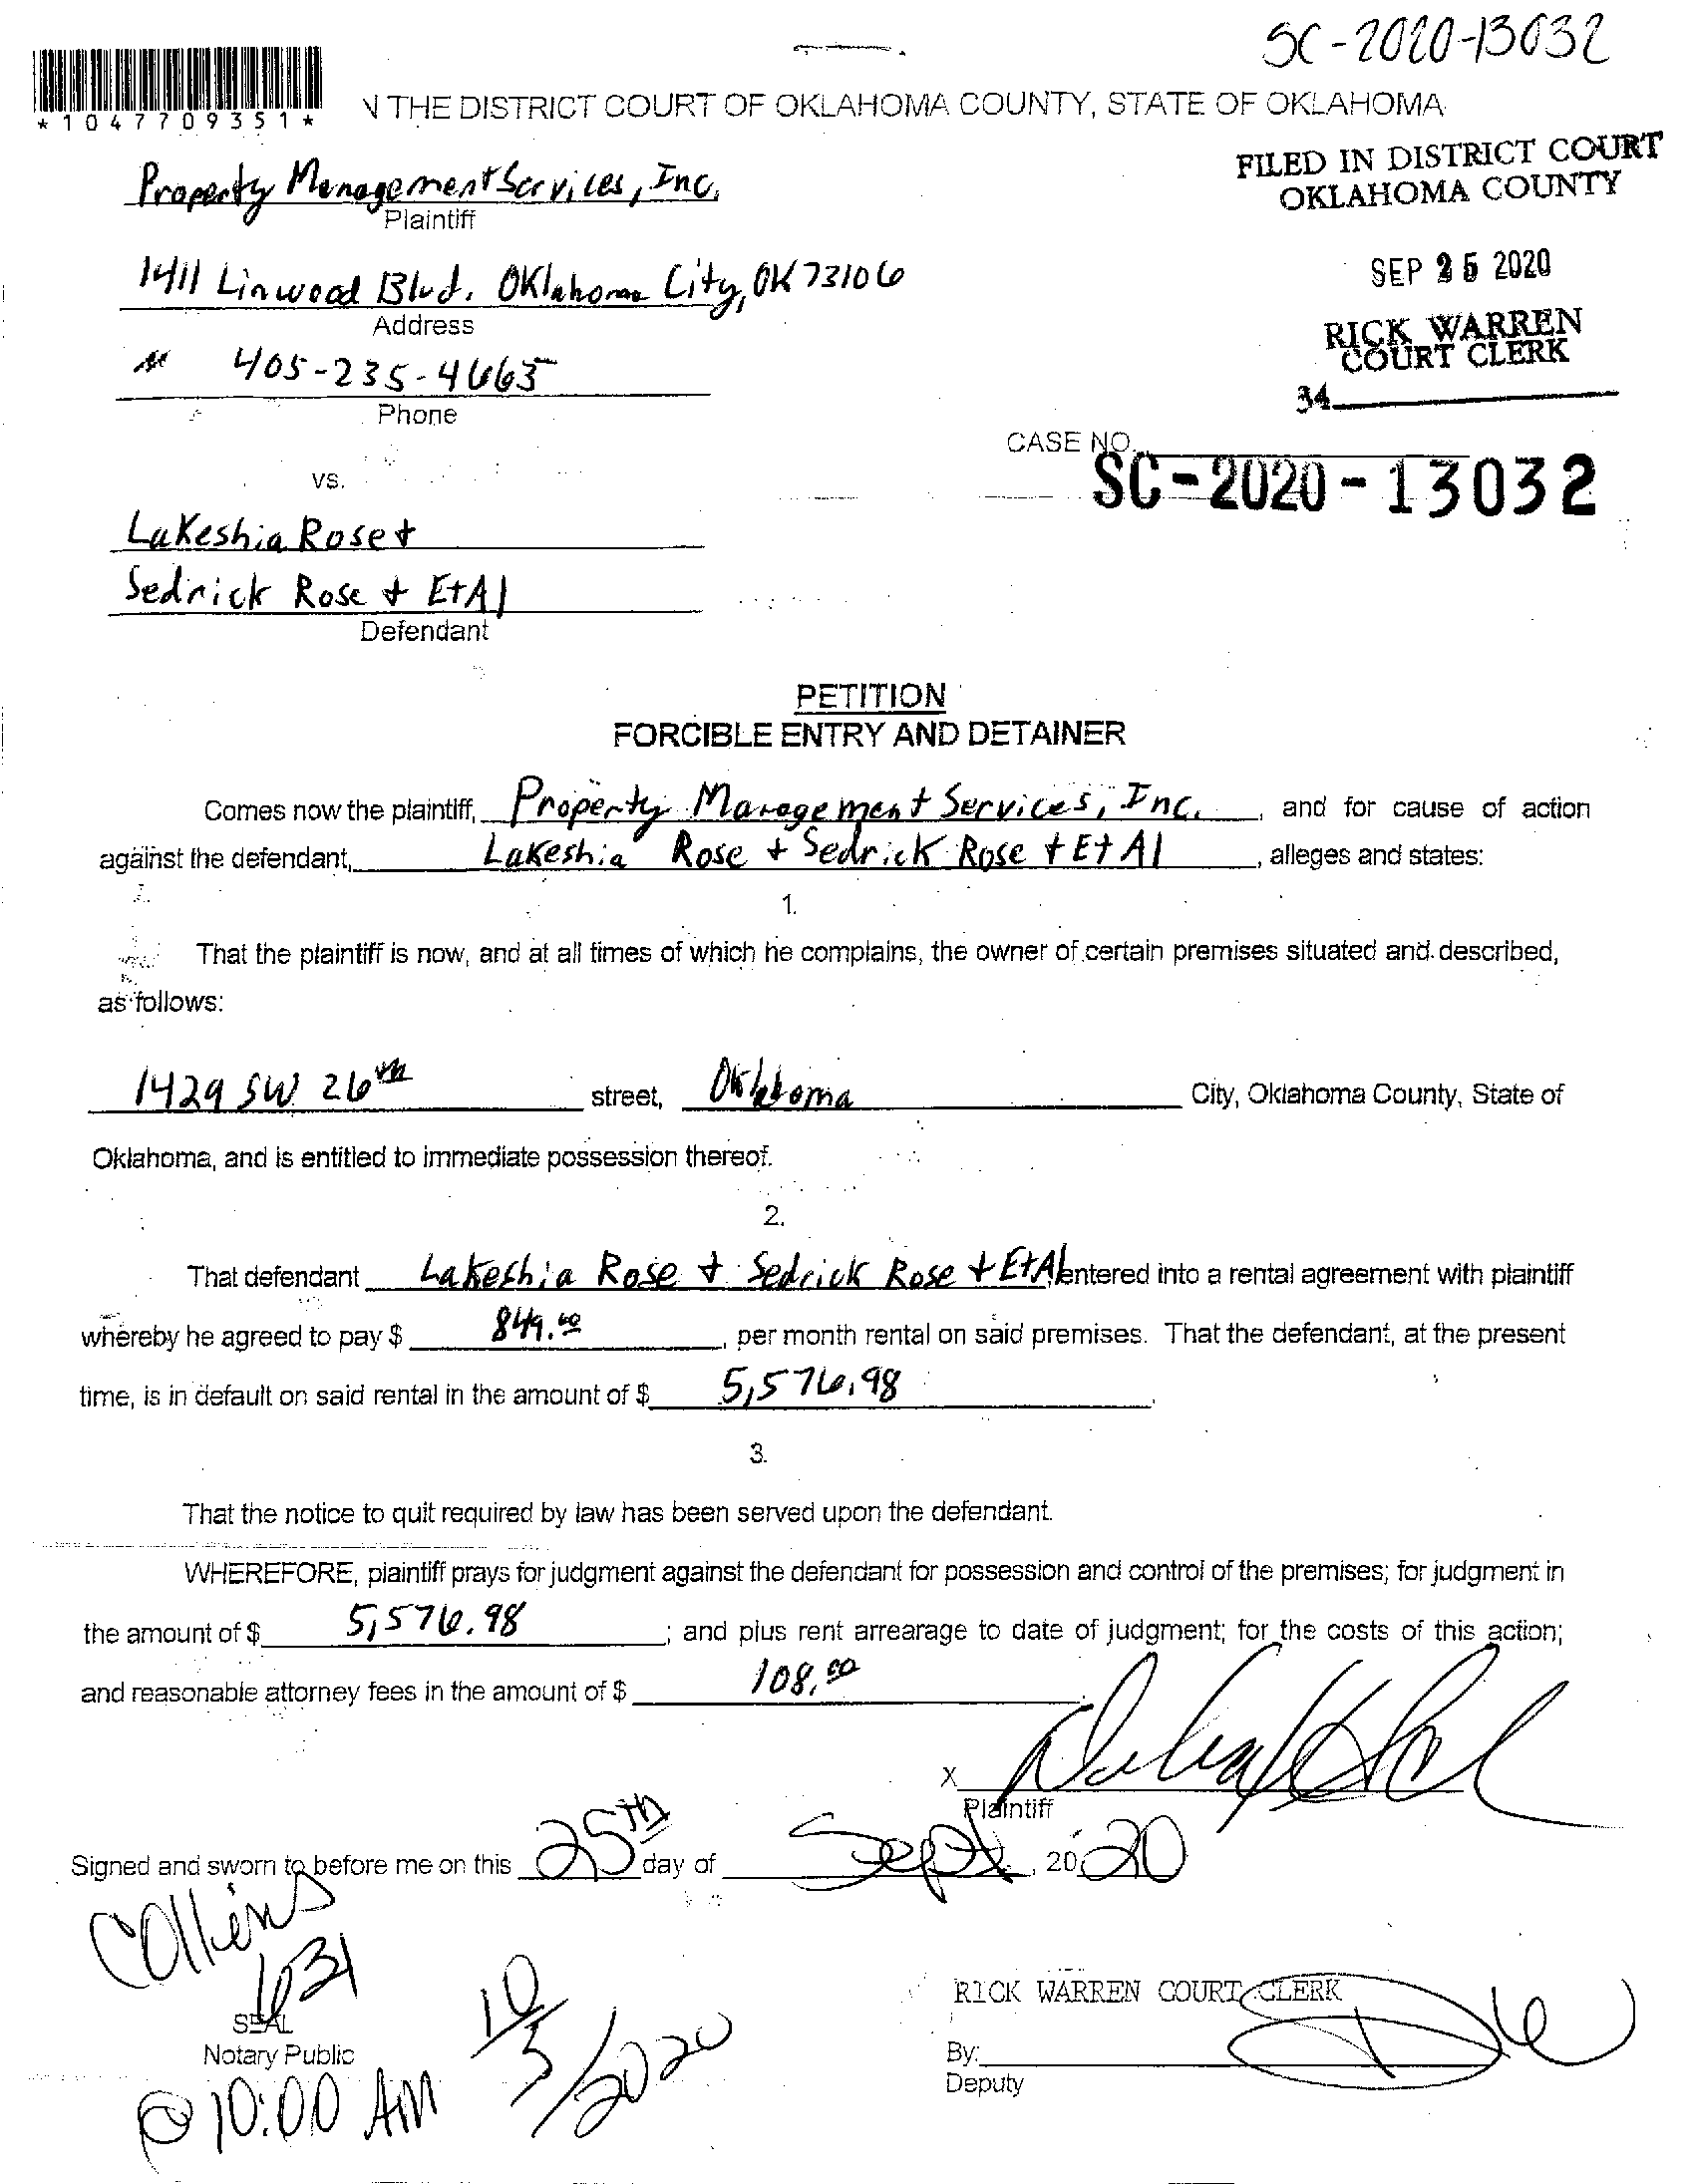 SC-2020-13032
*1047709351*
N THE DISTRICT COURT OF OKLAHOMA COUNTY, STATE OF OKLAHOMA
FILED IN DISTRICT COURT
OKLAHOMA COUNTY
Property Management Services, Inc.
Plaintiff
SEP 25 2020
1411 Linwood Blvd. Oklahoma City, OK 73106
Address
RICK WARREN
COURT CLERK
405-235-4663
34
Phone
CASE NO.
SC-2020-13032
vs.
Lakeshia Rose +
Sedrick Rose + Et Al
Defendant
PETITION
FORCIBLE ENTRY AND DETAINER
Comes now the plaintiff, Property Management Services, Inc., and for cause of action
against the defendant, Lakeshia Rose + Sedrick Rose + Et Al, alleges and states:
1.
That the plaintiff is now, and at all times of which he complains, the owner of certain premises situated and described,
as follows:
1429 SW 26th street, Oklahoma City, Oklahoma County, State of
Oklahoma, and is entitled to immediate possession thereof.
2.
That defendant Lakeshia Rose + Sedrick Rose + Et Al entered into a rental agreement with plaintiff
whereby he agreed to pay $ 849.00, per month rental on said premises. That the defendant, at the present
time, is in default on said rental in the amount of $ 5,576.98.
3.
That the notice to quit required by law has been served upon the defendant.
WHEREFORE, plaintiff prays for judgment against the defendant for possession and control of the premises; for judgment in
the amount of $ 5,576.98; and plus rent arrearage to date of judgment; for the costs of this action;
and reasonable attorney fees in the amount of $ 108.00.
X
Plaintiff
Signed and sworn to before me on this 25TH day of Sept, 2020
Collins
631
SEAL
Notary Public
@ 10:00 AM
10/5/2020
RICK WARREN COURT CLERK
By:
Deputy